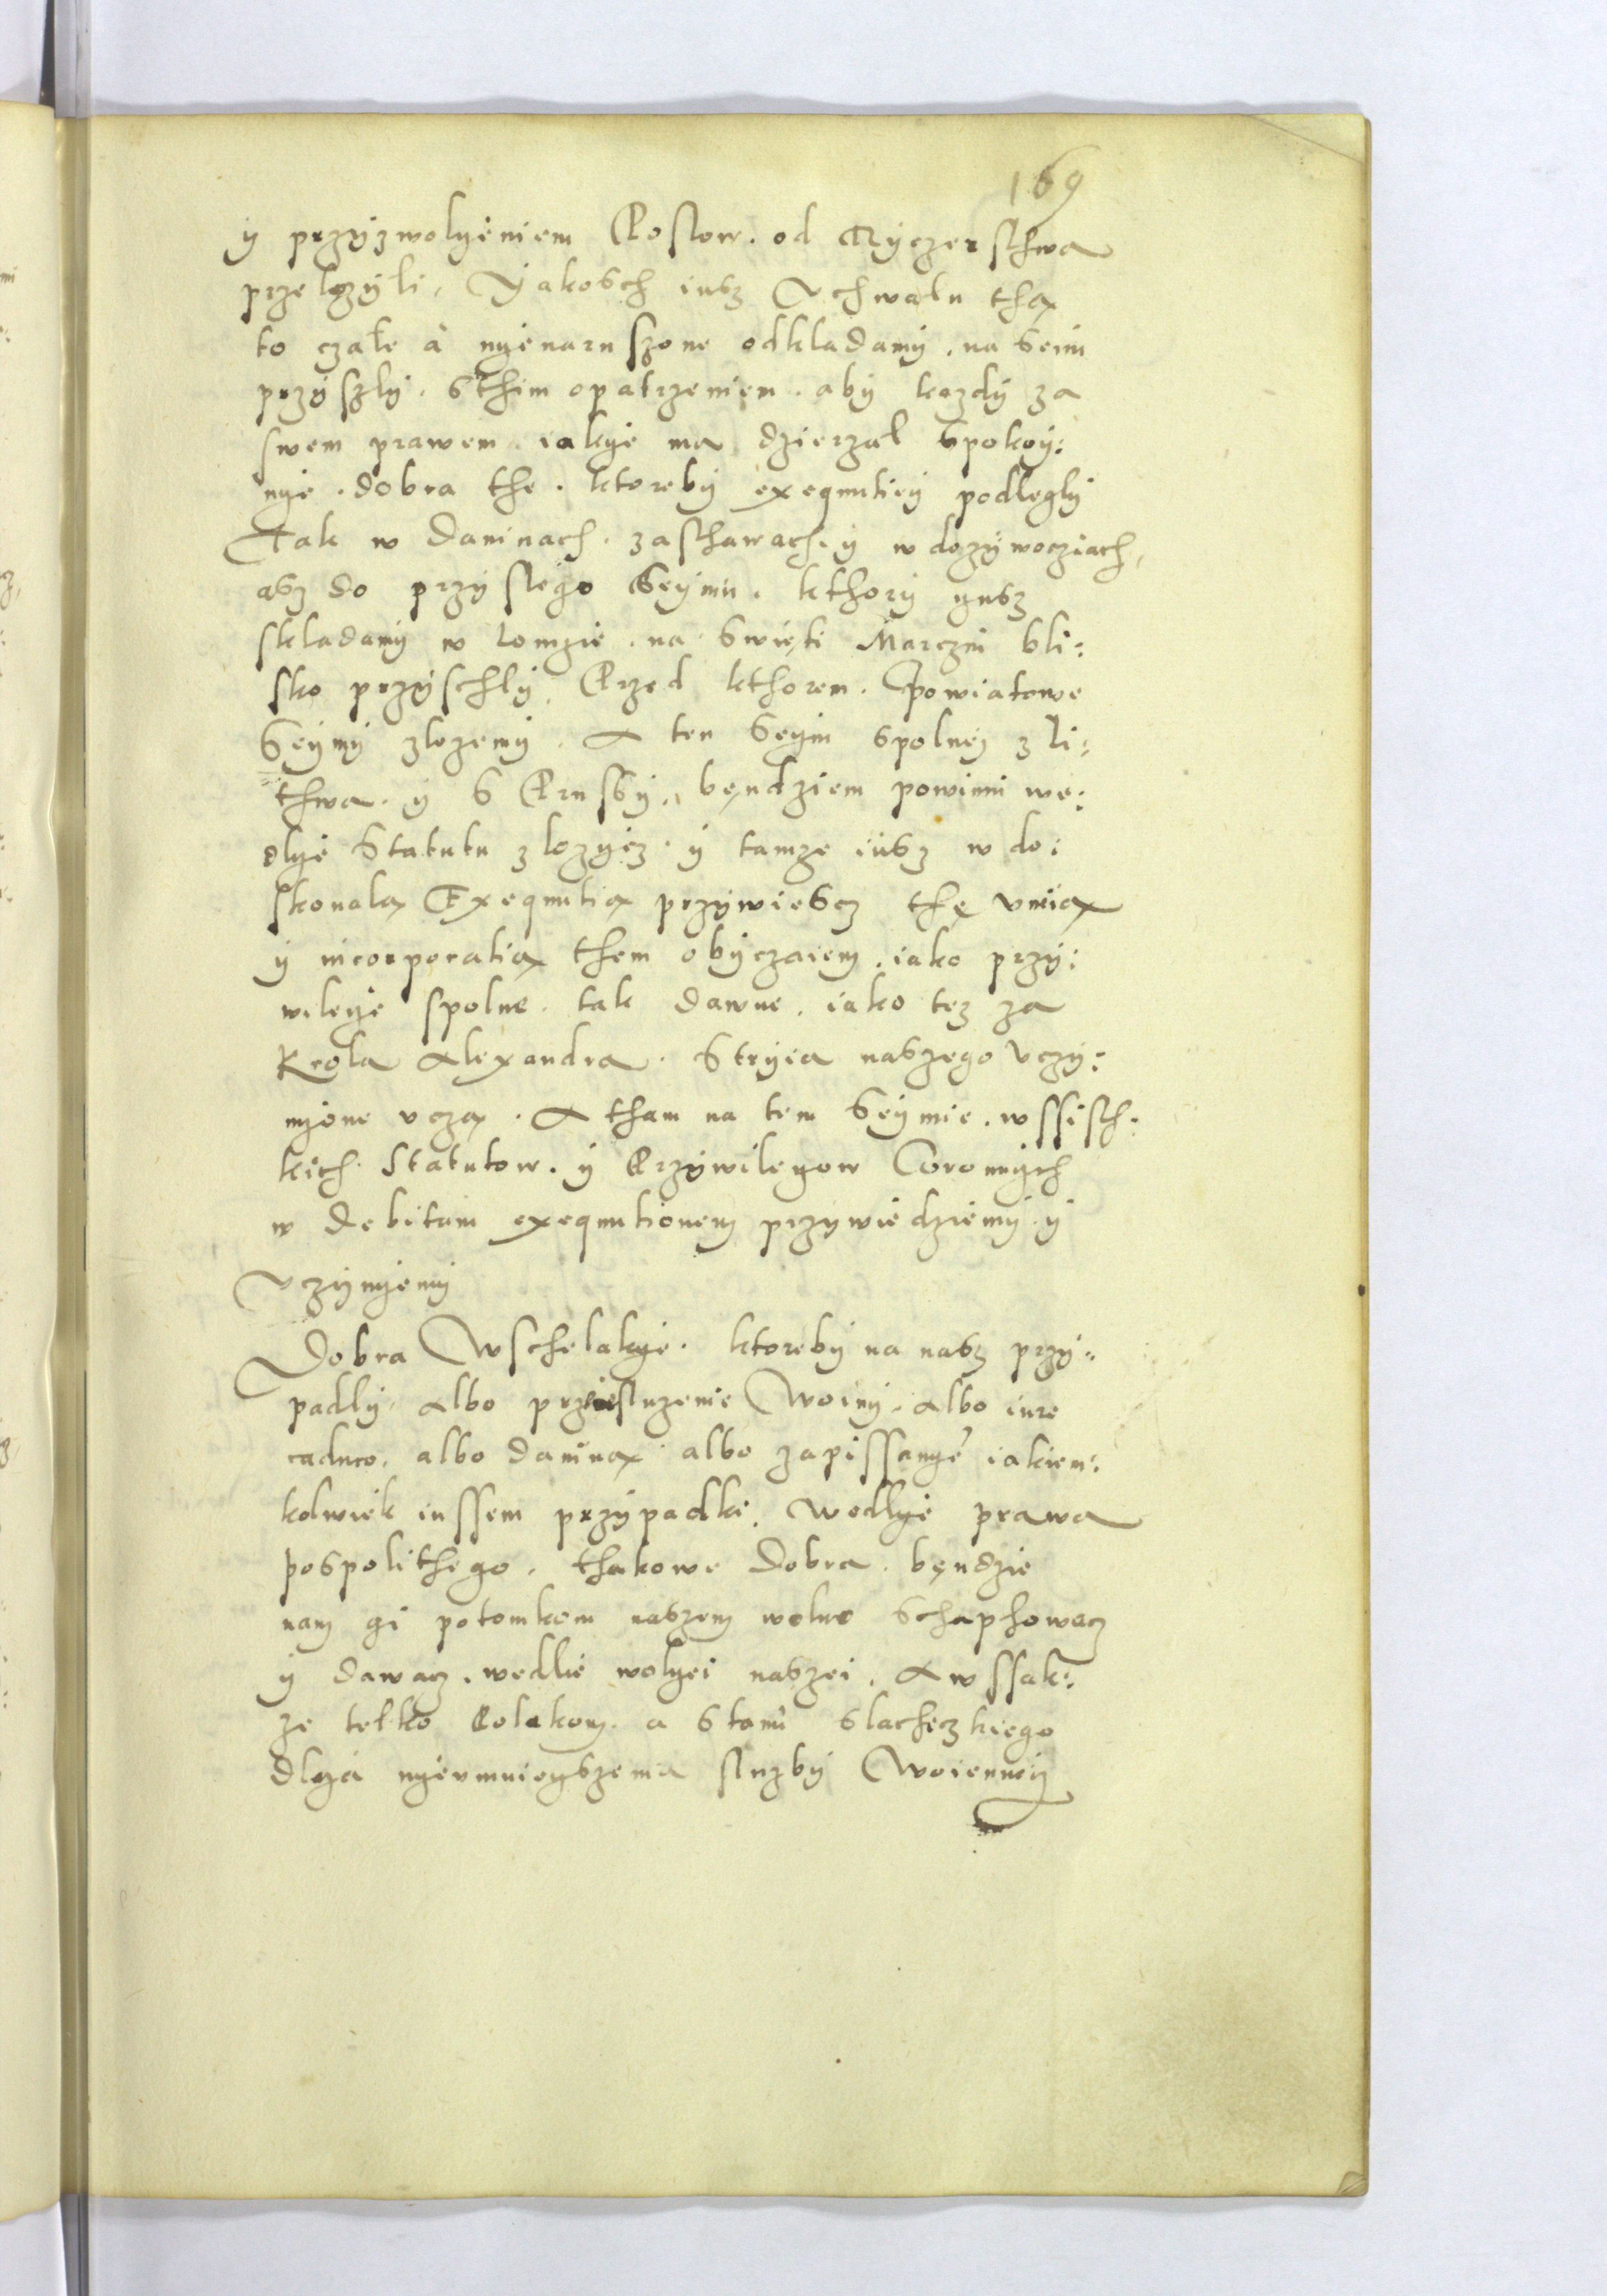 169
ÿ przÿzwolyeniem Poslow. od Rÿczerschwa
przelozÿli, Yakosch iusz Uchwalu tha
to czale à nyenaruszone odkladamÿ. na Seim
przÿszlÿ. Sthim opatrzeniem. abÿ kazdÿ za
swem prawem iakye ma dzierzal spokoÿ:
nye. dobra the. ktorebÿ exequutieÿ podleglÿ
Tak w Daninach. zasthawach. ÿ w dozÿwocziach,
asz do przÿslego Seÿmu. kthorÿ yusz
skladamÿ w Lomzie. na Swięti Marczin bli:
sko przÿschlÿ. Przed kthorem. Powiatowe
Seÿmÿ zlozemÿ. A ten Seym spolneÿ z Li:
thwa. ÿ S Prussÿ, bęndziem powinni we:
dlye Statutu zlozÿcz. ÿ tamze iusz w do:
skonala Exequutia przÿwiescz thę unia
ÿ incorporatia them obÿczaiem. iako przÿ:
wileye spolne. tak dawne. iako tez za
Krola Alexandra. Strÿia naszego Uczÿ:
nyone ucza. A tham na tem Seÿmie. wssisch:
kich Statutow. ÿ Przÿwilegow Coronnÿch
w debitam exequutionem przÿwiedziemÿ ÿ
Uczÿnyemÿ
Dobra Wschelakye. ktorebÿ na nasz przÿ:
padlÿ. Albo przesluzenie Woinÿ. Albo iure
caduco. albo danina albo zapissanye iakiem:
kolwiek inssem przÿpadki. Wedlye prawa
pospolithego. thakowe Dobra. bęndzie
nam gi potomkom naszem wolno Schaphowacz
ÿ dawacz. wedlie wolyei naszei. A wssak:
ze telko Polakom. a Stanu Slacheczkiego
dlya nyeumnieyszenia sluzbÿ Woienneÿ